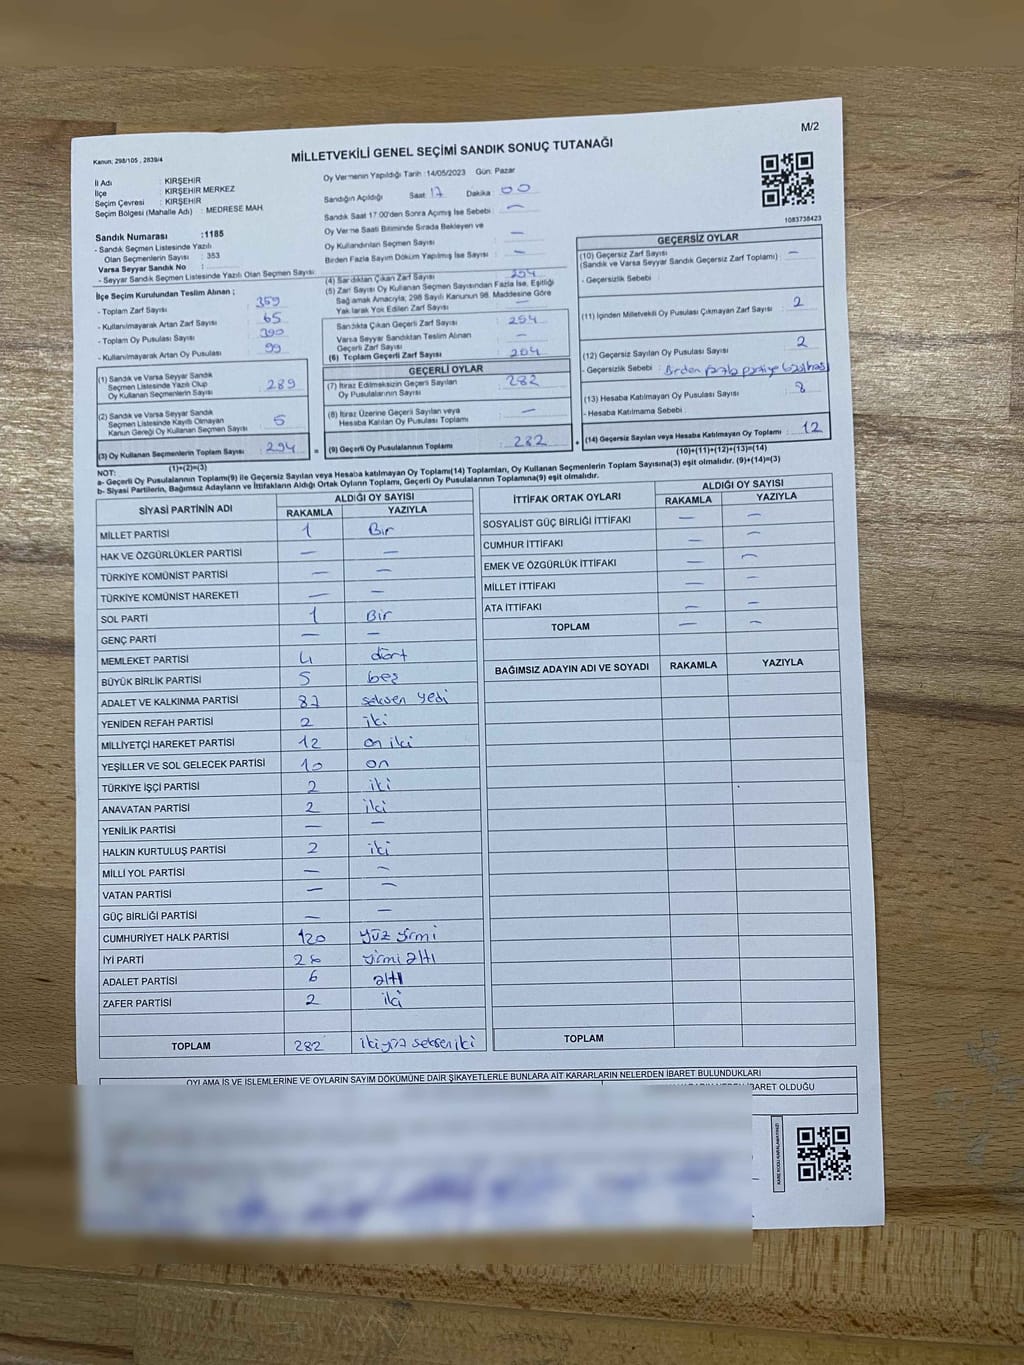 M/2
Kanun: 298/105 , 2839/4
MİLLETVEKİLİ GENEL SEÇİMİ SANDIK SONUÇ TUTANAĞI
İl Adı : KIRŞEHİR
İlçe : KIRŞEHİR MERKEZ
Seçim Çevresi : KIRŞEHİR
Seçim Bölgesi (Mahalle Adı) : MEDRESE MAH.
Sandık Numarası :1185
- Sandık Seçmen Listesinde Yazılı
Olan Seçmenlerin Sayısı : 353
Varsa Seyyar Sandık No :
- Seyyar Sandık Seçmen Listesinde Yazılı Olan Seçmen Sayısı:
Oy Vermenin Yapıldığı Tarih :14/05/2023 Gün: Pazar
Sandığın Açıldığı Saat 17 Dakika 00
Sandık Saat 17.00'den Sonra Açımış İse Sebebi : —
Oy Verme Saati Bitiminde Sırada Bekleyen ve
Oy Kullandırılan Seçmen Sayısı : —
Birden Fazla Sayım Döküm Yapılmış İse Sayısı : —
1083738423
İlçe Seçim Kurulundan Teslim Alınan ;
- Toplam Zarf Sayısı : 359
- Kullanılmayarak Artan Zarf Sayısı : 65
- Toplam Oy Pusulası Sayısı : 390
- Kullanılmayarak Artan Oy Pusulası : 99
(1) Sandık ve Varsa Seyyar Sandık
Seçmen Listesinde Yazılı Olup
Oy Kullanan Seçmenlerin Sayısı : 289
(2) Sandık ve Varsa Seyyar Sandık
Seçmen Listesinde Kayıtlı Olmayan
Kanun Gereği Oy Kullanan Seçmen Sayısı : 5
(3) Oy Kullanan Seçmenlerin Toplam Sayısı : 294
(1)+(2)=(3)
(4) Sandıktan Çıkan Zarf Sayısı : 294
(5) Zarf Sayısı Oy Kullanan Seçmen Sayısından Fazla İse, Eşitliği
Sağlamak Amacıyla, 298 Sayılı Kanunun 98. Maddesine Göre
Yakılarak Yok Edilen Zarf Sayısı : —
Sandıkta Çıkan Geçerli Zarf Sayısı : 294
Varsa Seyyar Sandıktan Teslim Alınan
Geçerli Zarf Sayısı : —
(6) Toplam Geçerli Zarf Sayısı : 294
GEÇERLİ OYLAR
(7) İtiraz Edilmeksizin Geçerli Sayılan
Oy Pusulalarının Sayısı : 282
(8) İtiraz Üzerine Geçerli Sayılan veya
Hesaba Katılan Oy Pusulası Toplamı : —
= (9) Geçerli Oy Pusulalarının Toplamı : 282
GEÇERSİZ OYLAR
(10) Geçersiz Zarf Sayısı
(Sandık ve Varsa Seyyar Sandık Geçersiz Zarf Toplamı) : —
- Geçersizlik Sebebi :
(11) İçinden Milletvekili Oy Pusulası Çıkmayan Zarf Sayısı : 2
(12) Geçersiz Sayılan Oy Pusulası Sayısı : 2
- Geçersizlik Sebebi : Birden fazla partiye
(13) Hesaba Katılmayan Oy Pusulası Sayısı : 8
- Hesaba Katılmama Sebebi :
+ (14) Geçersiz Sayılan veya Hesaba Katılmayan Oy Toplamı : 12
(10)+(11)+(12)+(13)=(14)
NOT:
a- Geçerli Oy Pusulalarının Toplamı(9) ile Geçersiz Sayılan veya Hesaba katılmayan Oy Toplamı(14) Toplamları, Oy Kullanan Seçmenlerin Toplam Sayısına(3) eşit olmalıdır. (9)+(14)=(3)
b- Siyasi Partilerin, Bağımsız Adayların ve İttifakların Aldığı Ortak Oyların Toplamı, Geçerli Oy Pusulalarının Toplamına(9) eşit olmalıdır.
SİYASİ PARTİNİN ADI ALDIĞI OY SAYISI
RAKAMLA YAZIYLA
MİLLET PARTİSİ 1 Bir
HAK VE ÖZGÜRLÜKLER PARTİSİ — —
TÜRKİYE KOMÜNİST PARTİSİ — —
TÜRKİYE KOMÜNİST HAREKETİ — —
SOL PARTİ 1 Bir
GENÇ PARTİ — —
MEMLEKET PARTİSİ 4 dört
BÜYÜK BİRLİK PARTİSİ 5 beş
ADALET VE KALKINMA PARTİSİ 87 seksen yedi
YENİDEN REFAH PARTİSİ 2 iki
MİLLİYETÇİ HAREKET PARTİSİ 12 on iki
YEŞİLLER VE SOL GELECEK PARTİSİ 10 on
TÜRKİYE İŞÇİ PARTİSİ 2 iki
ANAVATAN PARTİSİ 2 iki
YENİLİK PARTİSİ — —
HALKIN KURTULUŞ PARTİSİ 2 iki
MİLLİ YOL PARTİSİ — —
VATAN PARTİSİ — —
GÜÇ BİRLİĞİ PARTİSİ — —
CUMHURİYET HALK PARTİSİ 120 yüz yirmi
İYİ PARTİ 26 yirmi altı
ADALET PARTİSİ 6 altı
ZAFER PARTİSİ 2 iki
TOPLAM 282 ikiyüz seksen iki
İTTİFAK ORTAK OYLARI ALDIĞI OY SAYISI
RAKAMLA YAZIYLA
SOSYALİST GÜÇ BİRLİĞİ İTTİFAKI — —
CUMHUR İTTİFAKI — —
EMEK VE ÖZGÜRLÜK İTTİFAKI — —
MİLLET İTTİFAKI — —
ATA İTTİFAKI — —
TOPLAM — —
BAĞIMSIZ ADAYIN ADI VE SOYADI RAKAMLA YAZIYLA
TOPLAM
OYLAMA İŞ VE İŞLEMLERİNE VE OYLARIN SAYIM DÖKÜMÜNE DAİR ŞİKAYETLERLE BUNLARA AİT KARARLARIN NELERDEN İBARET BULUNDUKLARI
İBARET OLDUĞU